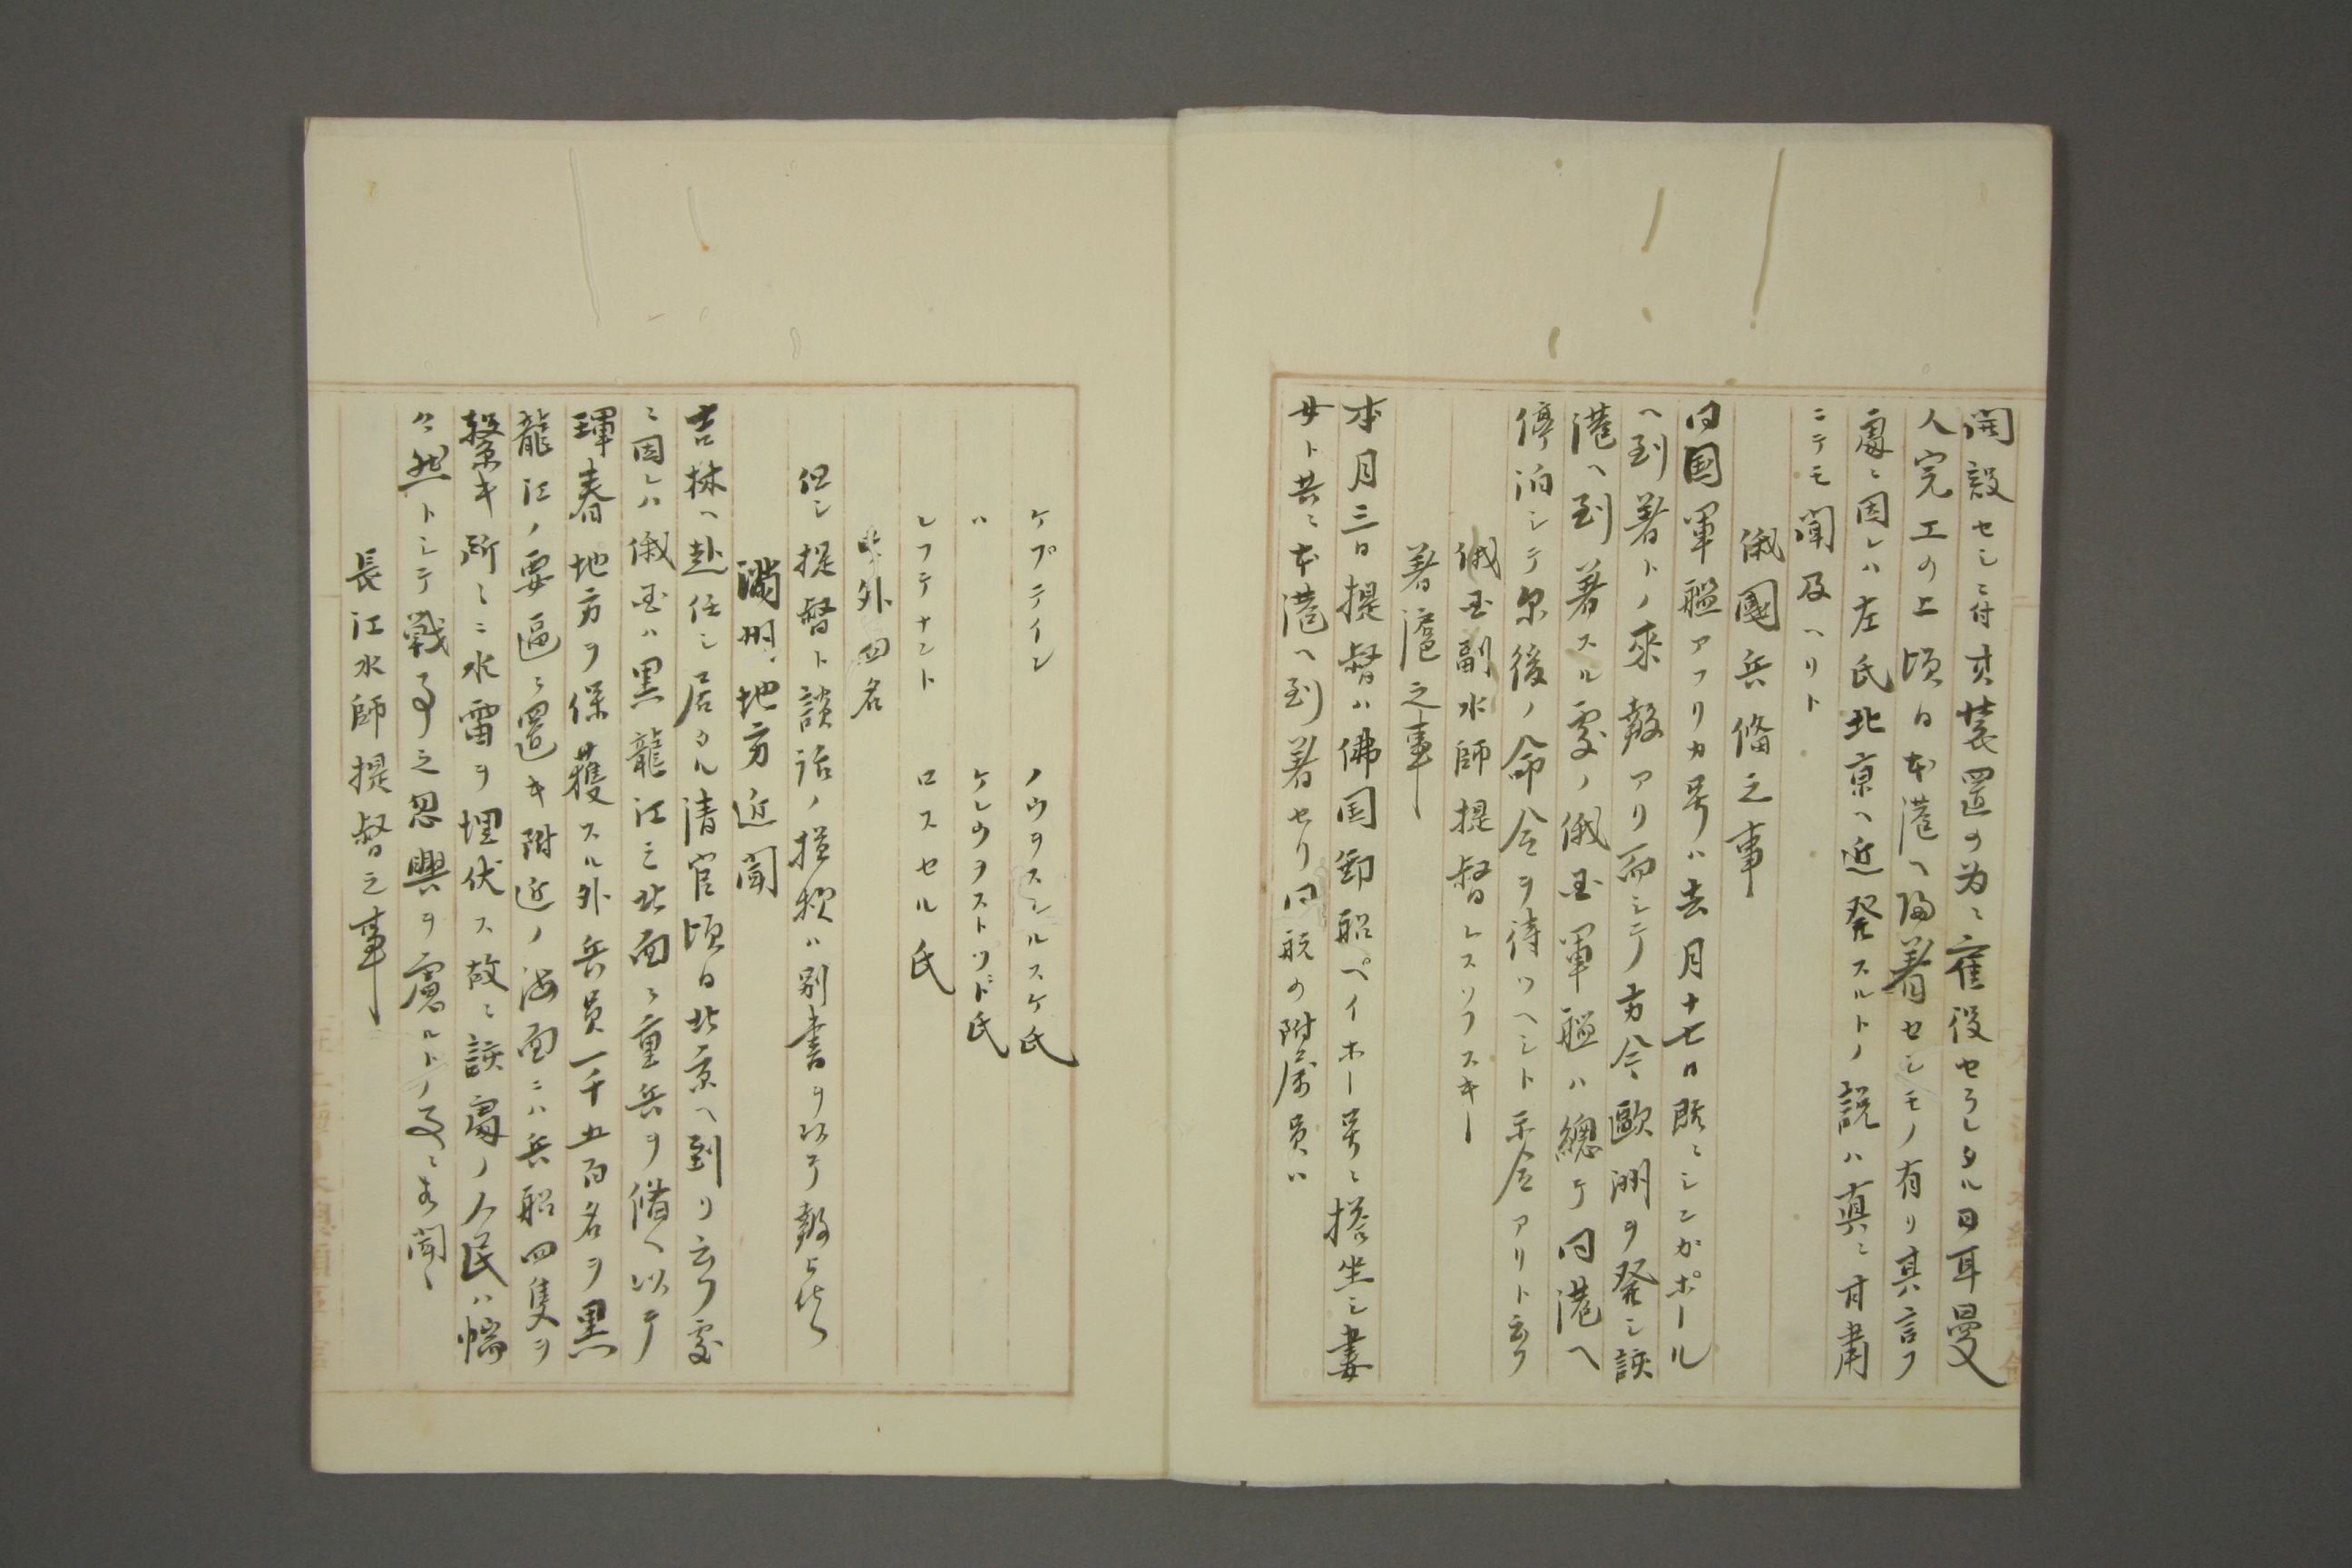 開設セシニ付其装置ノ為ニ雇役セラレタル日耳曼
人完工ノ上頃日本港ヘ帰着セシモノ有リ其言フ
處ニ因レハ左氏北京ヘ近発スルトノ説ハ真ニ甘粛
ニテモ聞及ヘリト
俄國兵備之事
同国軍艦アフリカ号ハ去月十七日既ニシンガポール
ヘ到着トノ来報アリ而シテ方今欧洲ヲ発シ該
港ヘ到着スル処ノ俄国軍艦ハ總テ同港ヘ
停泊シテ尓後ノ命令ヲ待ツヘシト示令アリト云フ
俄国副水師提督レスソフスキー
着滬之事
本月三日提督ハ佛国郵船ペイホー号ニ搭坐シ妻
女ト共ニ本港ヘ到着セリ同航ノ附属員ハ
ケプテイン ノウヲスシルスケ氏
〃 ケレウヲストツド氏
レフテナント ロスセル氏
外四名
但シ提督ト談話ノ模様ハ別書ヲ以テ報
満州地方近聞
吉林ヘ赴任シ居タル清官頃日北京ヘ到リ云フ処
ニ因レハ俄国ハ黒龍江之北面ニ重兵ヲ備ヘ以テ
琿春地方ヲ保護スル外兵員一千五百名ヲ黒
龍江ノ要逼ニ置キ附近ノ海面ニハ兵船四隻ヲ
繋キ所々ニ水雷ヲ埋伏ス故ニ該處ノ人民ハ惴
々然トシテ戦事之忽興ヲ慮ルトノ事ニ相聞ヘ
長江水師提督之事